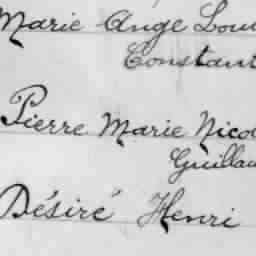 Marie Ange Lou
Constant
Pierre Marie Nico
Guillau
Désiré Henri